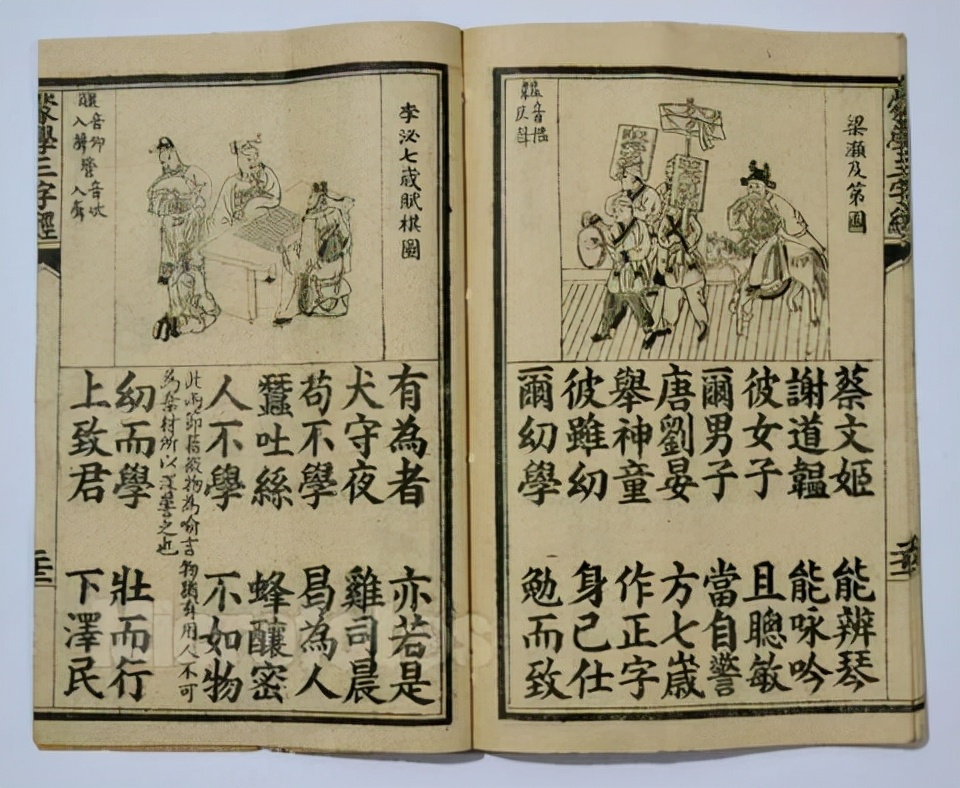 蒙學三字經
梁灝及第圖
蔡文姬 能辨琴
謝道韞 能咏吟
彼女子 且聰敏
爾男子 當自警
唐劉晏 方七歲
舉神童 作正字
彼雖幼 身已仕
爾幼學 勉而致
李泌七歲賦棋圖
有為者 亦若是
犬守夜 雞司晨
苟不學 曷為人
蠶吐絲 蜂釀密
人不學 不如物
此兩節借微物為喻言物猶有用人不可
為棄材所以深警之也
幼而學 壯而行
上致君 下澤民
蒙學三字經